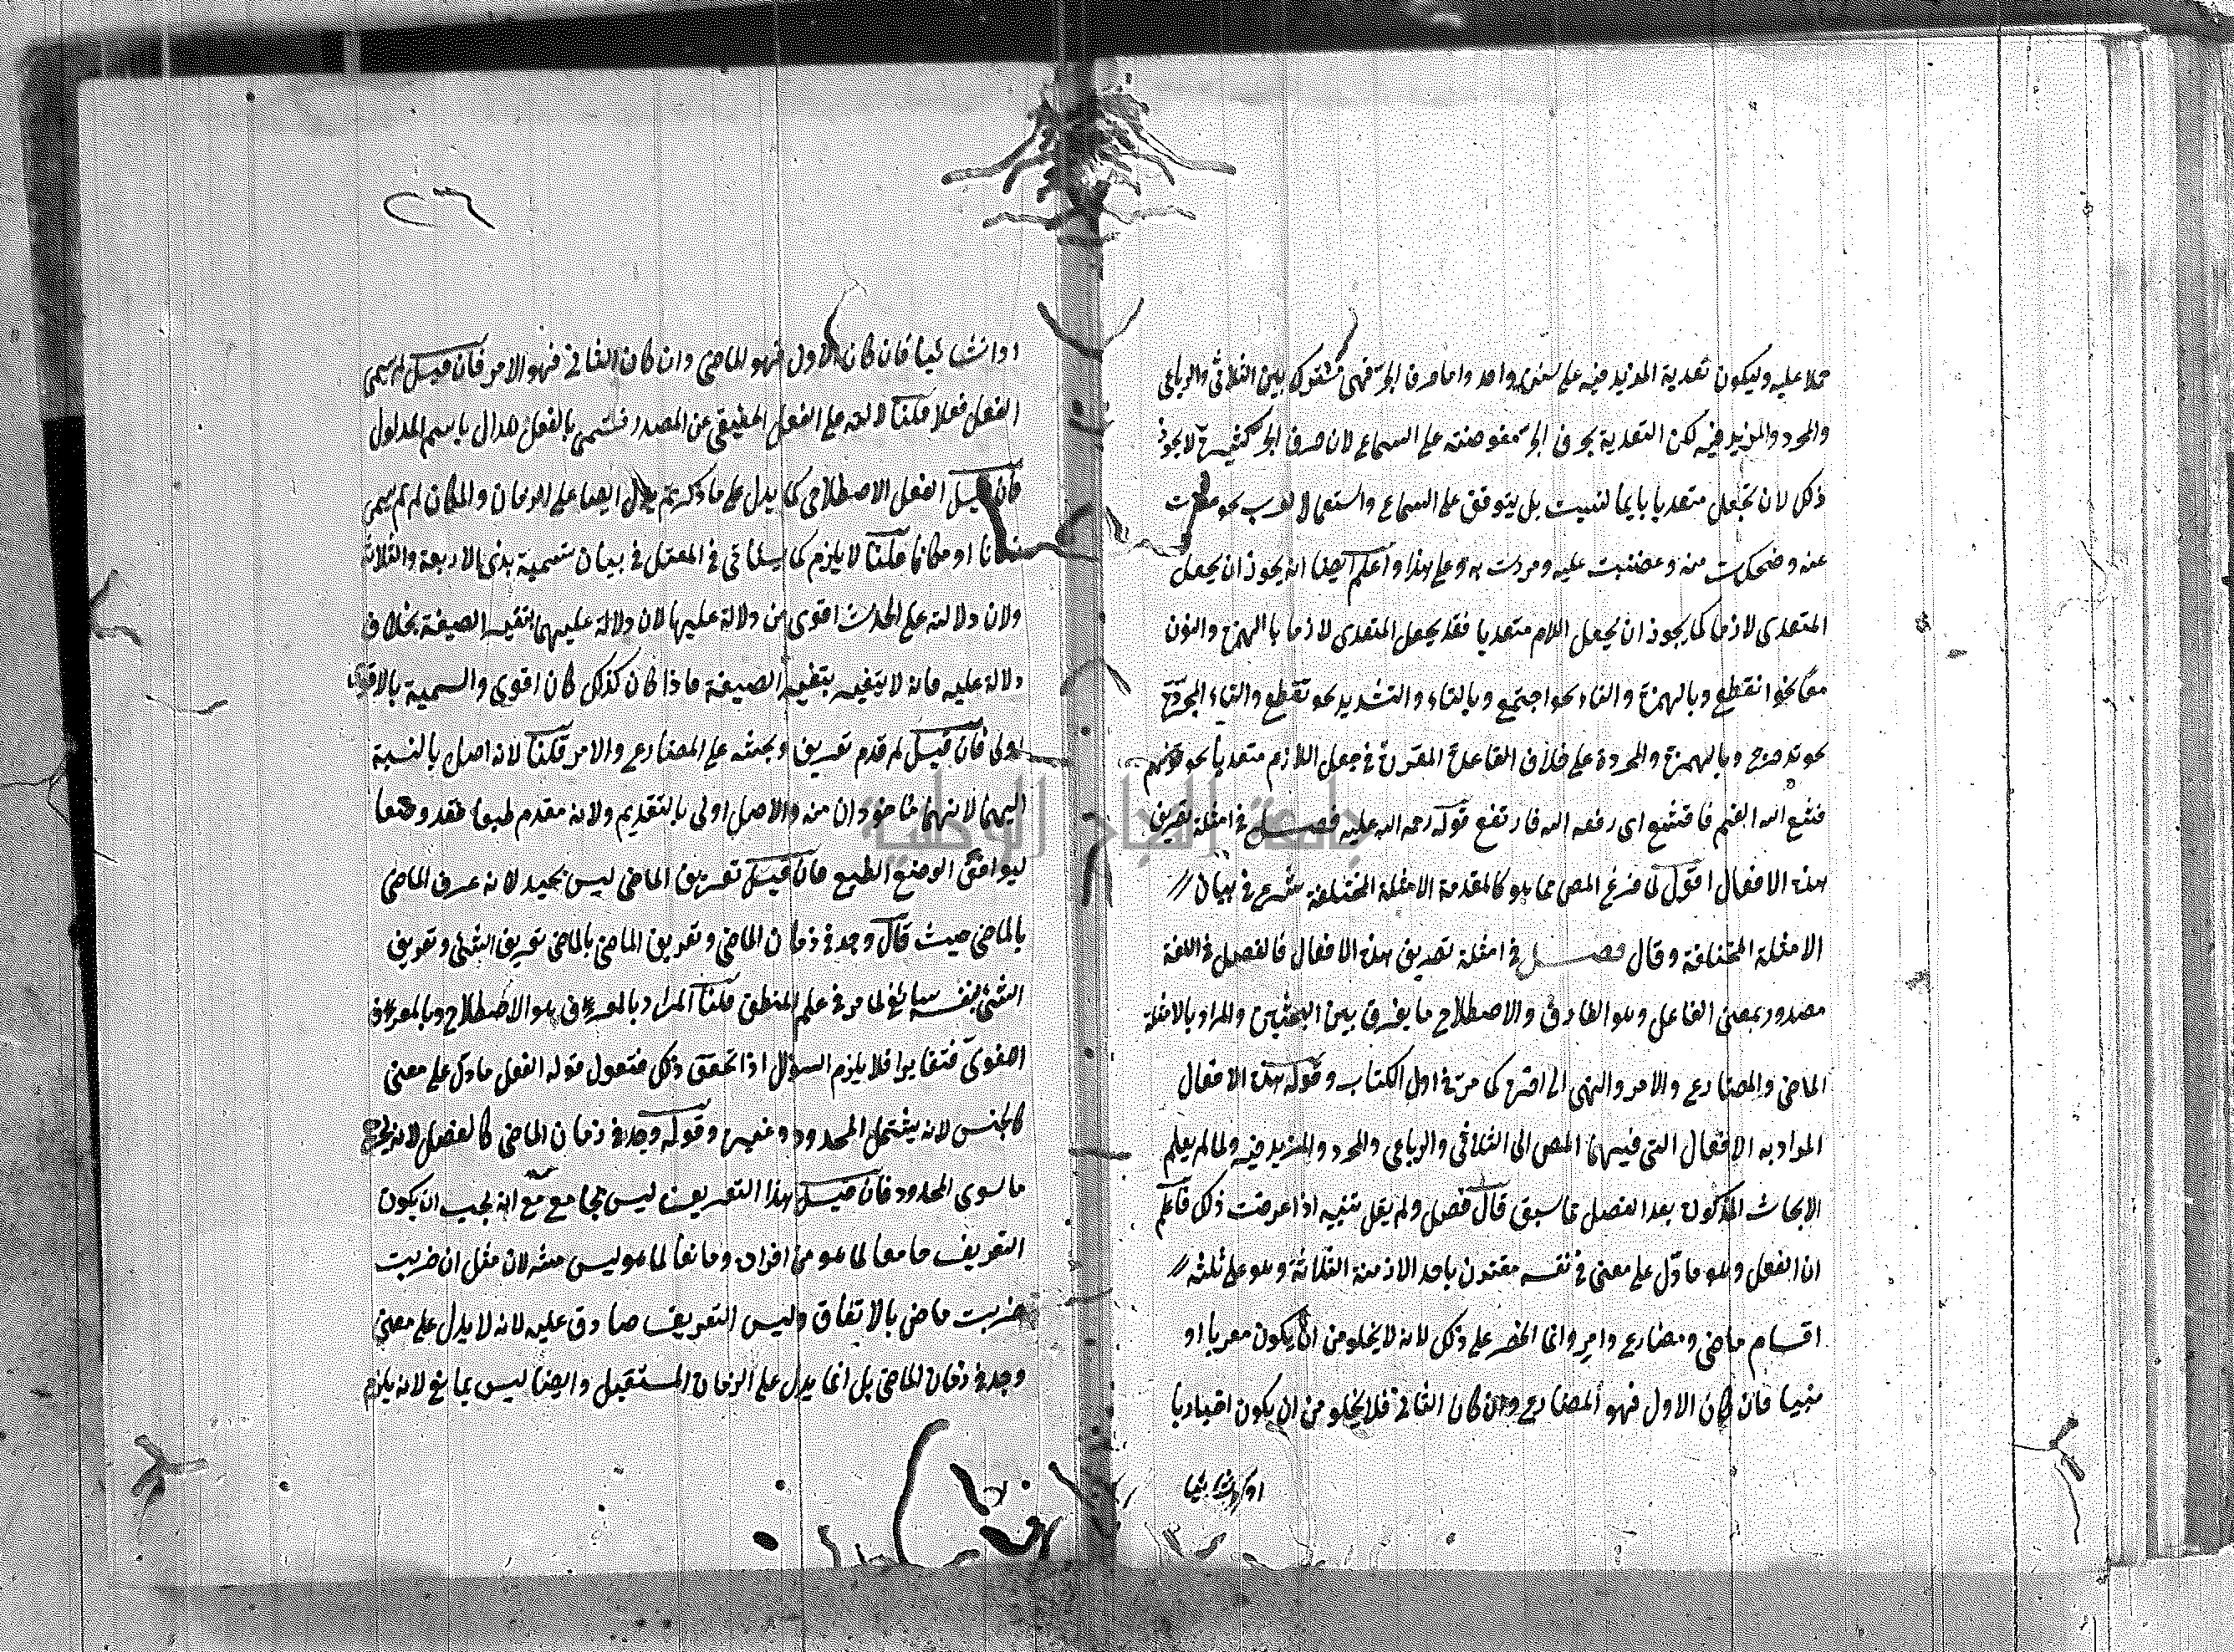 حملا عليه وليكون تعدية المزيد فيه على سنن واحد واما حرف الجر فهي مشترك بين الثلاثي والرباعي
والمجرد والمزيد فيه لكن التعدية بحرف الجر مفوضة على السماع لان حرف الجر كغيره لا يجوز
ذلك لان تجعل متعديا بايما لنسبت بل يتوقف على السماع واستعمال العرب نحو
عنه وضحكت منه وغضبت عليه ومررت به وعلى هذا واعلم ايضا انه يجوز ان يجعل
المتعدى لازما كما يجوز ان يجعل اللام متعديا فقد يجعل المتعدى لازما بالهمزة والنون
معا نحو انقطع وبالهمزة والتاء نحو اجتمع وبالتاء والتشديد نحو تقطع والتاء المجردة
نحو تدحرج وبالهمزة والمجردة على خلاف القاعدة المقررة في جعل اللازم متعديا نحو
قشع الله الغيم فاقشع اى رفعه الله فارتفع قوله رحمه الله عليه فصل في امثلة تصريف
هذه الافعال اقول لما فرغ المص مما هو كالمقدمة الامثلة المختلفة شرع في بيان
الامثلة المختلفة وقال فصل في امثلة تصريف هذه الافعال فالفصل في اللغة
مصدر بمعنى الفاعل وهو الفارق والاصطلاح ما يفرق بين البحثين والمراد بالامثلة
الماضي والمضارع والامر والنهى الى اخره كما مر في اول الكتاب وقوله هذه الافعال
المراد به الافعال التي فيهما المص الى الثلاثي والرباعي والمجرد والمزيد فيه ولما لم يعلم
الابحاث المذكورة بعد الفصل مما سبق قال فصل ولم يقل تنبيه اذا عرفت ذلك فاعلم
ان الفعل وهو ما دل على معنى في نفسه مقترن باحد الازمنة الثلاثة وهو على ثلثه
اقسام ماضي ومضارع وامر وانما انحصر على ذلك لانه لا يخلو من ان يكون معربا او
مبنيا فان كان الاول فهو المضارع وان كان الثاني فلا يخلو من ان يكون اخباريا
او انشائيا
٢٣
او انشائيا فان كان الاول فهو الماضي وان كان الثاني فهو الامر فان قيل لم سمى
الفعل فعلا قلنا لدلالته على الفعل الحقيقى عن المصدر فسمى بالفعل الدال باسم المدلول
فان قيل الفعل الاصطلاحى كما يدل على ما ذكرتم يدل ايضا على الزمان والمكان لم لم يسمى
زمانا او مكانا قلنا لا يلزم كما سيأتى في المعتل في بيان تسمية بذى الاربعة والثلاثة
ولان دلالته على الحدث اقوى من دلالة عليها لان دلالة عليهما بتغير الصيغة بخلاف
دلالة عليه فانه لا يتغير بتغير الصيغة فاذا كان كذلك كان اقوى والتسمية بالاقوى
اولى فان قيل لم قدم تعريف وبحثه على المضارع والامر قلنا لانه اصل بالنسبة
اليهما لانهما مأخوذان منه والاصل اولى بالتقديم ولانه مقدم طبعا فقدم وضعا
ليوافق الوضع الطبع فان قيل تعريف الماضي ليس بجيد لانه عرف الماضي
بالماضي حيث قال وجد في زمان الماضي وتعريف الماضي بالماضي تعريف الشئ وتعريف
الشئ بنفسه سائغ لما مر في علم المنطق قلنا المراد بالمعرف هو الاصطلاح وبالمعرف
اللغوى فتغايرا فلا يلزم السؤال اذا تحقق ذلك فنقول قوله الفعل ما دل على معنى
كالجنس لانه يشتمل المحدود وغيره وقوله وجد في زمان الماضي كالفصل لانه يخرج
ما سوى المحدود فان قيل هذا التعريف ليس بجامع مع انه يجب ان يكون
التعريف جامعا لما هو من افراده ومانعا لما هو ليس منه لان مثل ان ضربت
ضربت ماضي بالاتفاق وليس التعريف صادق عليه لانه لا يدل على معنى
وجد في زمان الماضي بل انما يدل على الزمان المستقبل وايضا ليس بمانع لانه يلزم
جامعة النجاح الوطنية